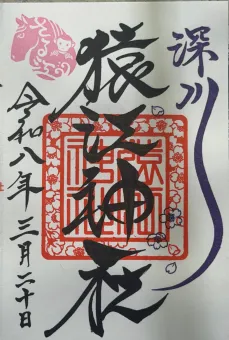 深川
猿江神社
令和八年三月二十日